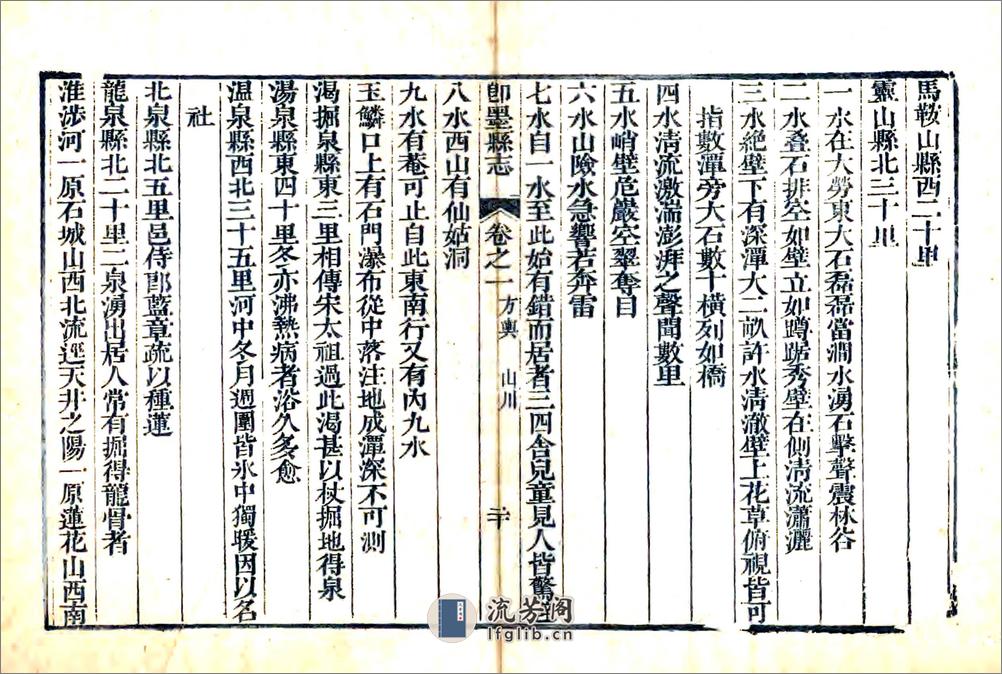 馬鞍山縣西二十里
靈山縣北三十里
一水在大勞東大石磊磊當澗水湧石擊聲震林谷
二水叠石排空如壁立如蹲踞秀壁在側淸流瀟灑
三水絶壁下有深潭大二畝許水淸澈壁上花草俯視皆可
指數潭旁大石數十橫列如橋
四水淸流激湍澎湃之聲聞數里
五水峭壁危巖空翠奪目
六水山險水急響若奔雷
七水自一水至此始有錯而居者三四舍兒童見人皆驚
卽墨縣志 卷之一 方輿 山川 二十
八水西山有仙姑洞
九水有菴可止自此東南行又有內九水
玉鱗口上有石門瀑布從中落注地成潭深不可測
渴掘泉縣東三里相傳宋太祖過此渴甚以杖掘地得泉
湯泉縣東四十里冬亦沸熱病者浴久多愈
温泉縣西北三十五里河中冬月週圍皆氷中獨暖因以名
社
北泉縣北五里邑侍郎藍章疏以種蓮
龍泉縣北二十里二泉湧出居人常有掘得龍骨者
淮涉河一原石城山西北流逕天井之陽一原蓮花山西南
流芳阁
lfglib.cn